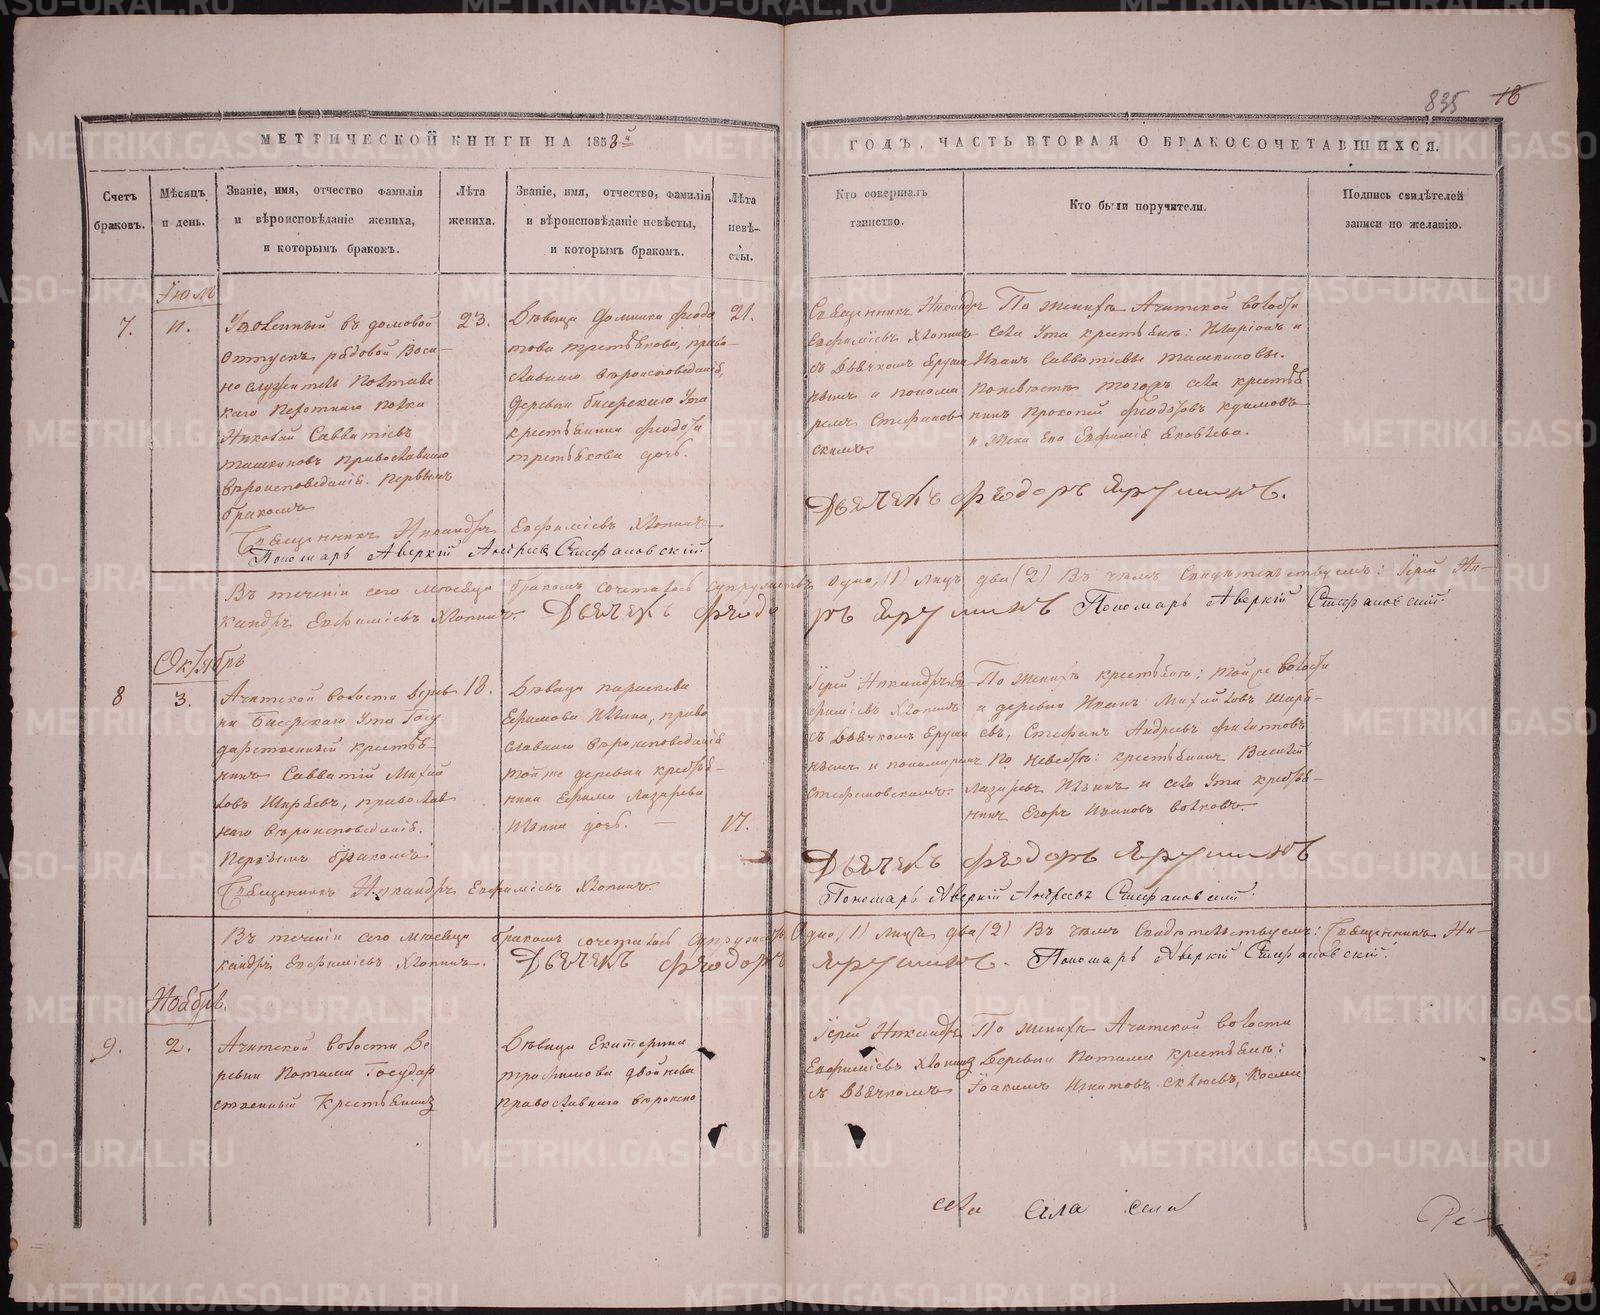 835 18
МЕТРИЧЕСКОЙ КНИГИ НА 1853й
ГОДЪ, ЧАСТЬ ВТОРАЯ О БРАКОСОЧЕТАВШИХСЯ.
Счетъ
браковъ.
Мѣсяцъ
и день.
Званіе, имя, отчество фамилія
и вѣроисповѣданіе жениха,
и которымъ бракомъ.
Лѣта
жениха.
Званіе, имя, отчество, фамилія
и вѣроисповѣданіе невѣсты,
и которымъ бракомъ.
Лѣта
невѣ-
сты.
Кто совершалъ
таинство.
Кто были поручители.
Подпись свидѣтелей
записи по желанію.
7.
11.
Уволенный въ домовой
отпускъ рядовой Воен-
но служитель Полтавс
каго Пехотнаго полка
Николай Савватіевъ
ташкиновъ православнаго
вѣроисповеданія. Первымъ
бракомъ
23.
Дѣвица Домника Ѳеодо
това третьякова, право-
славнаго вѣроисповеданія,
деревни бисерскаго Ута
третьякова дочь.
21.
Священникъ Никандръ
Евфиміевъ Хлопинъ
съ Дьячкомъ Еруши
нымъ и понома
ремъ Стефанов
скимъ
По женихѣ Ачитской волости
села Ута крестьяне: Иларіонъ и
Иванъ Савватіевы ташкиновы.
По невѣстѣ тогожъ села крестья
нинъ Прокопій
и жена его Евфимія Яковлева.
Дьячекъ Ѳеодоръ Ярушинъ.
Священникъ Никандръ Евфиміевъ Хлопинъ
Пономарь Аверкій Андреевъ Стефановскій
Въ теченіи сего месяца бракомъ сочеталось супружествъ одно, (1) лицъ два (2) Въ чемъ Свидѣтельствуемъ: Іерей Ни-
кандръ Евфиміевъ Хлопинъ. Дьячекъ Ѳеодоръ Ярушинъ Пономарь Аверкій Стефановскій.
Октябрь
8
3.
Ачитской волости дерев
ни Бисерскаго Ута Госу
дарственный крестья-
нинъ Савватій Михай
ловъ Ширяевъ, православ
наго вѣроисповеданія.
Первымъ бракомъ
18.
Дѣвица параскева
Ефимова Ильина, право
славнаго вѣроисповеданія
той же деревни крестья-
нина Ефима Лазарева
Ильина дочь.
17.
Іерей Никандръ Ев
фиміевъ Хлопинъ
съ Дьячкомъ Еруши
нымъ и пономаремъ
Стефановскимъ.
По женихѣ крестьяне: той же волости
и деревни Иванъ Михайловъ Ширя-
евъ, Стефанъ Андреевъ филатовъ
По невѣстѣ: крестьянинъ Василій
Лазаревъ Ильинъ и села Ута крестья-
нинъ Егоръ Ивановъ волковъ.
Дьячекъ Ѳеодоръ Ярушинъ
Священникъ Никандръ Евфиміевъ Хлопинъ.
Пономарь Аверкій Андреевъ Стефановскій.
Въ теченіи сего месяца бракомъ сочеталось супружествъ Одно, (1) лицъ два (2) Въ чемъ Свидѣтельствуемъ: Священникъ Ни-
кандръ Евфиміевъ Хлопинъ. Дьячекъ Ѳеодоръ Ярушинъ. Пономарь Аверкій Стефановскій.
Ноябрь.
9.
2.
Ачитской волости Де
ревни Потами Государ
ственный Крестьянинъ
Дѣвица Екатерина
Трофимова двойнева
православнаго вѣроиспо
Іерей Никандръ
Евфиміевъ Хлопинъ
съ Дьячкомъ
По женихѣ Ачитской волости
деревни Потами крестьяне:
Іоакимъ Игнатовъ
села села села